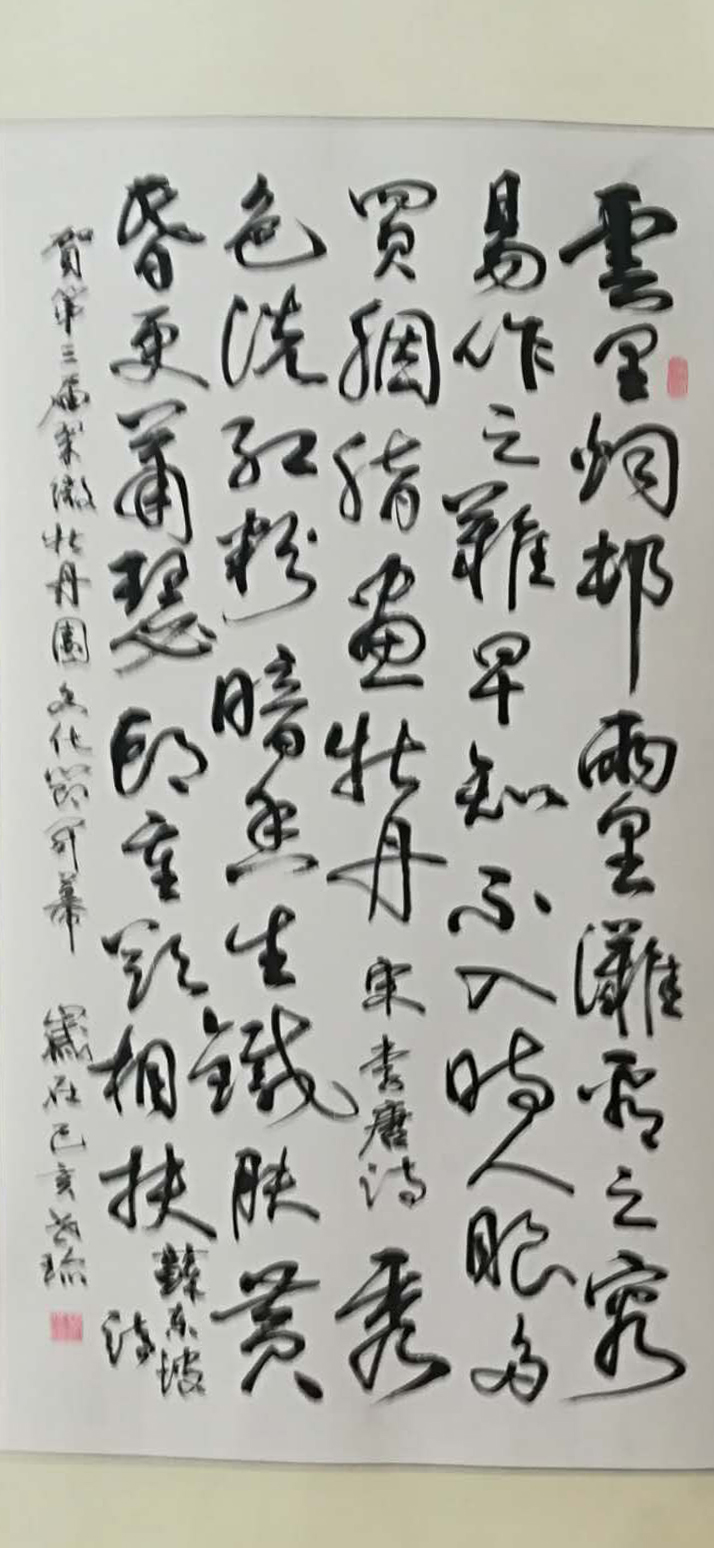 雲里烟邨雨里灘看之容
易作之難早知不入時人眼多
買胭脂畫牡丹 宋李唐詩 秀
色洗紅粉暗香生鐵肤黄
昏更蕭瑟重頭相扶 蘇東坡
詩
賀第三届牡丹園文化節開幕 歲在己亥瑜